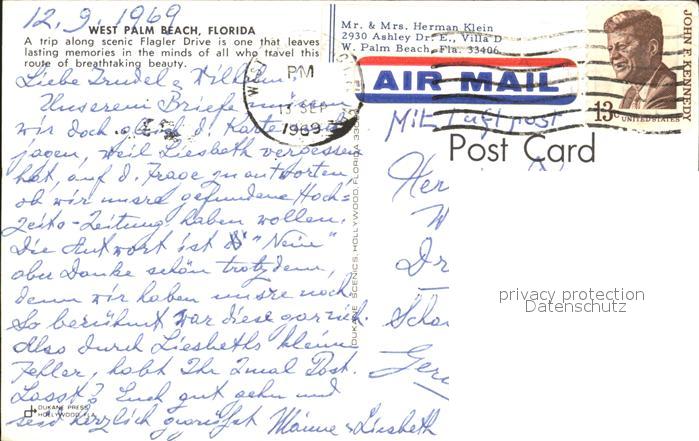 12.9.1969
WEST PALM BEACH, FLORIDA
A trip along scenic Flagler Drive is one that leaves
lasting memories in the minds of all who travel this
route of breathtaking beauty.
Liebe Trudel & Wilhelm
Unserem Briefe müssen
wir doch gleich d. Karte nach
jagen, weil Liesbeth vergessen
hat, auf d. Frage zu antworten,
ob wir unsre gefundene Hoch=
zeits-Zeitung haben wollen.
Die Antwort ist "Nein"
aber Danke schön trotzdem,
denn wir haben unsre noch.
So berühmt war diese gar nich.
Also durch Liesbeths kleine
Fehler, habt Ihr 2mal Post.
Lasst Euch gut gehn und
seid herzlich gegrüßt Manne & Liesbeth
DUKANE PRESS
HOLLYWOOD, FLA.
DUKANE SCENICS, HOLLYWOOD, FLORIDA 330
Mr. & Mrs. Herman Klein
2930 Ashley Dr. E., Villa D
W. Palm Beach, Fla. 33406
PM
13 SEP
1969
AIR MAIL
JOHN F. KENNEDY
13c
UNITED STATES
Mit Luftpost
Post Card
Her
W
Dr
Scha
Ger
privacy protection
Datenschutz